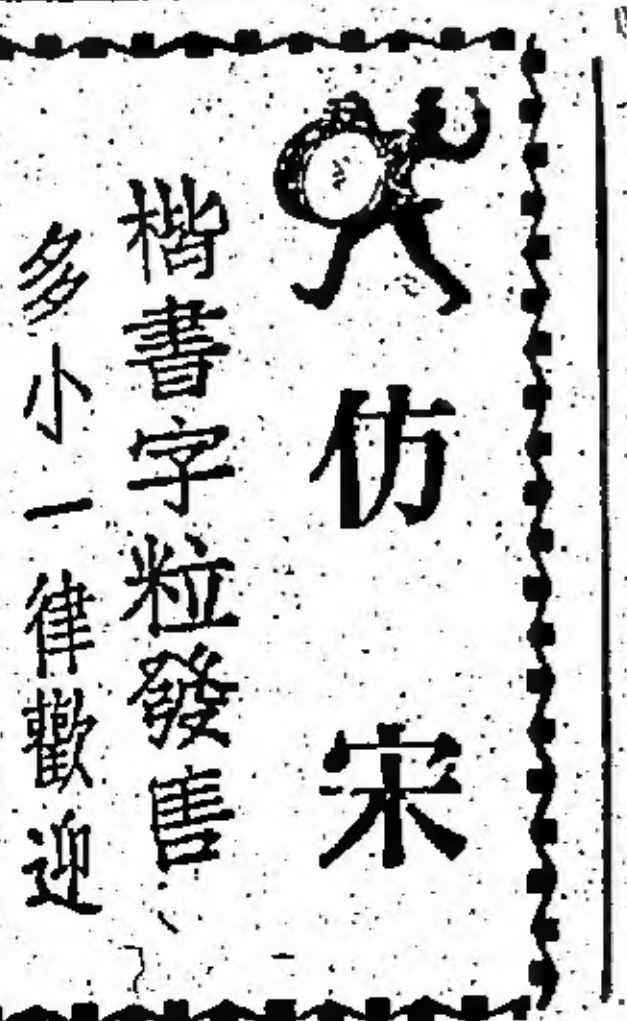 仿宋
楷書字粒發售
多小一律歡迎